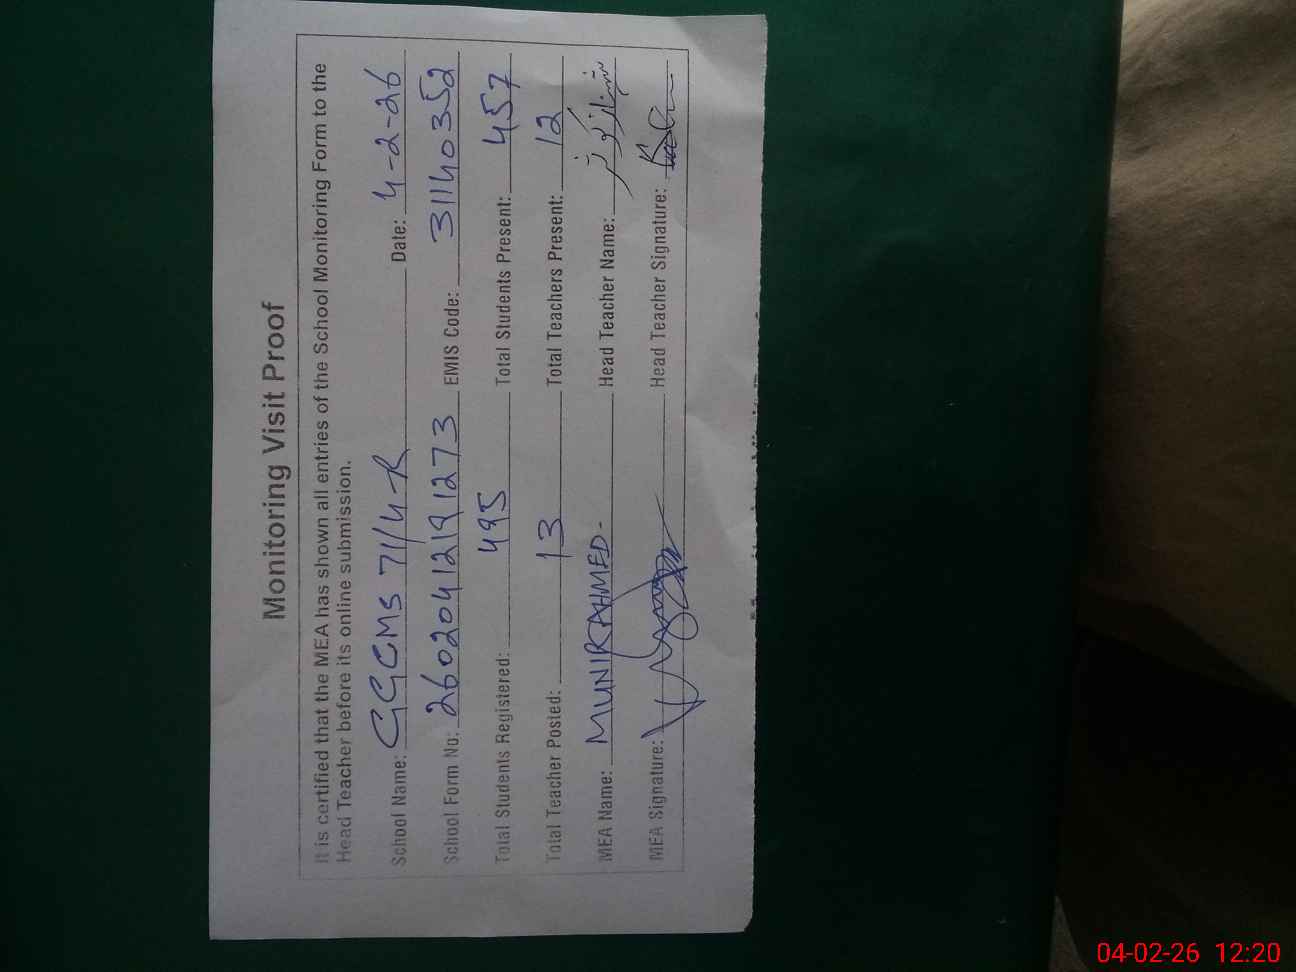 Monitoring Visit Proof
It is certified that the MEA has shown all entries of the School Monitoring Form to the
Head Teacher before its online submission.
School Name: GGCMS 71/4-R Date: 4-2-26
School Form No: 26020412191273 EMIS Code: 31140352
Total Students Registered: 495 Total Students Present: 457
Total Teacher Posted: 13 Total Teachers Present: 12
MEA Name: MUNIR AHMED- Head Teacher Name: شہناز کوثر
MEA Signature: Head Teacher Signature:
04-02-26 12:20